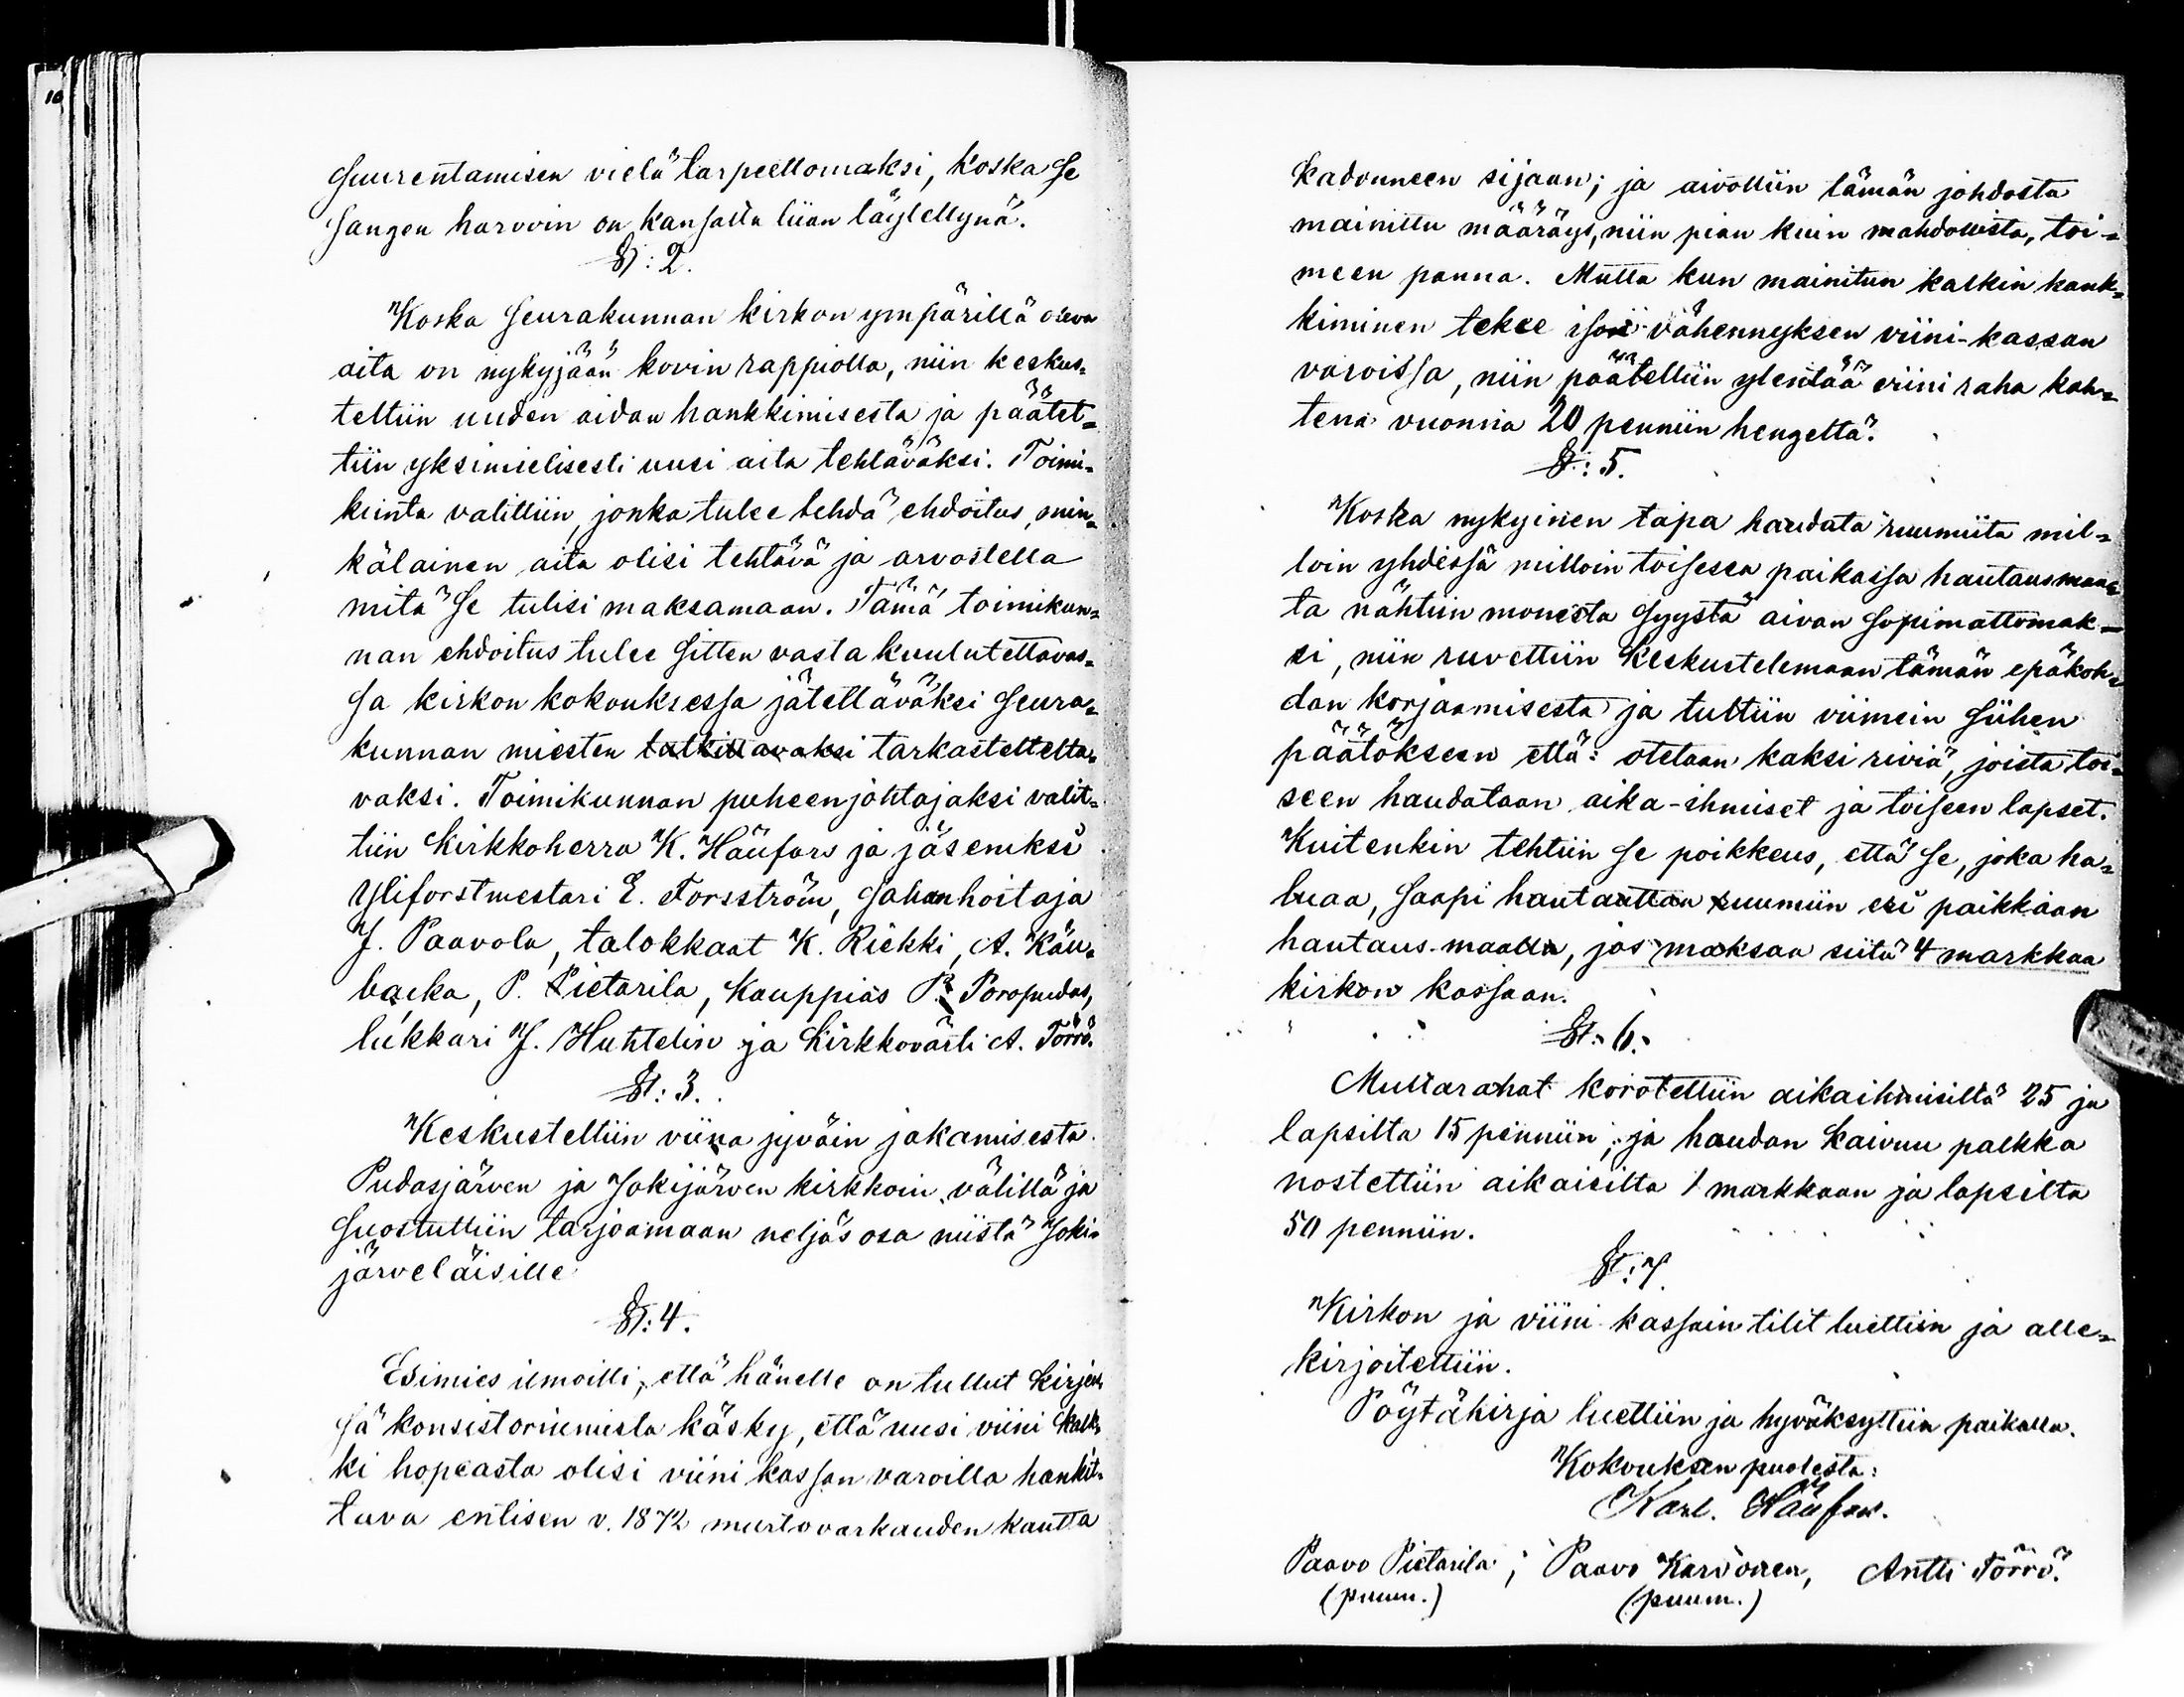 10
suurentamisen vielä tarpeettomaksi, koska se
sangen harvoin on kansalta liian täytettynä.
§: 2.
Koska seurakunnan kirkon ympärillä oleva
aita on nykyjään kovin rappiolla, niin keskus-
teltiin uuden aidan hankkimisesta ja päätet-
tiin yksimielisesti uusi aita tehtäväksi. Toimi-
kunta valittiin, jonka tulee tehdä ehdoitus, min-
kälainen aita olisi tehtävä ja arvostella
mitä se tulisi maksamaan. Tämä toimikun-
nan ehdoitus tulee sitten vasta kuulutettavas-
sa kirkon kokouksessa jätettäväksi seura-
kunnan miesten tutkittavaksi tarkasteltelta-
vaksi. Toimikunnan puheenjohtajaksi valit-
tiin Kirkkoherra K. Häufors ja jäseniksi
Yliforstmestari E. Forsström, sahanhoitaja
J. Paavola, talokkaat K. Riekki, A. Käu-
backa, P. Pietarila, Kauppias P. Poropudas,
lukkari J. Huhtelin ja Kirkkovärti A. Törrö.
§: 3.
Keskusteltiin viina jyväin jakamisesta
Pudasjärven ja Jokijärven kirkkoin välillä ja
suostuttiin tarjoamaan neljäs osa niistä Joki-
järveläisille
§: 4.
Esimies ilmoitti, että hänelle on tullut kirjees-
sä konsistoriumista käsky, että uusi viini kalk-
ki hopeasta olisi viini kassan varoilla hankit-
tava entisen v. 1872 murtovarkauden kautta
kadonneen sijaan; ja aivottiin tämän johdosta
mainittu määräys, niin pian kuin mahdollista, toi-
meen panna. Mutta kun mainitun kalkin hank-
kiminen tekee ison vähennyksen viini-kassan
varoissa, niin päätettiin ylentää viini raha kah-
tena vuonna 20 penniin hengeltä.
§: 5.
Koska nykyinen tapa haudata ruumiita mil-
loin yhdessä milloin toisessa paikassa hautausmaa-
ta nähtiin monesta syystä aivan sopimattomak-
si, niin ruvettiin keskustelemaan tämän epäkoh-
dan korjaamisesta ja tultiin viimein siihen
päätökseen että: otetaan kaksi riviä, joista toi-
seen haudataan aika-ihmiset ja toiseen lapset.
Kuitenkin tehtiin se poikkeus, että se, joka ha-
luaa, saapi hautauttaa ruumiin eri paikkaan
hautaus-maalla, jos maksaa siitä 4 markkaa
kirkon kassaan.
§: 6.
Multarahat korotettiin aikaihmisiltä 25 ja
lapsilta 15 penniin; ja haudan kaivuu palkka
nostettiin aikaisilta 1 markkaan ja lapsilta
50 penniin.
§: 7
Kirkon ja viini kassain tilit luettiin ja alle-
kirjoitettiin.
Pöytäkirja luettiin ja hyväksyttiin paikalla.
Kokouksen puolesta:
Karl. Häufors.
Paavo Pietarila; Paavo Karvonen, Antti Törrö.
(puum.) (puum.)